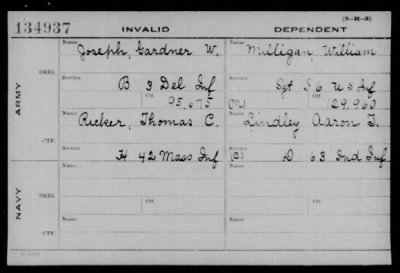 134937 INVALID DEPENDENT (3-H-3)
ARMY
ORIG.
Name Joseph, Gardner W. Name Milligan, William
Service B 3 Del Inf Service Sgt I 6 U S Inf
Ctf. 95,675 (M) Ctf. 129,960
CTF.
Name Ricker, Thomas C. Name Lindley Aaron T.
Service H 42 Mass Inf Service (C) D 63 Ind Inf
NAVY
ORIG.
Name Name
Ctf. Ctf.
CTF.
Name Name